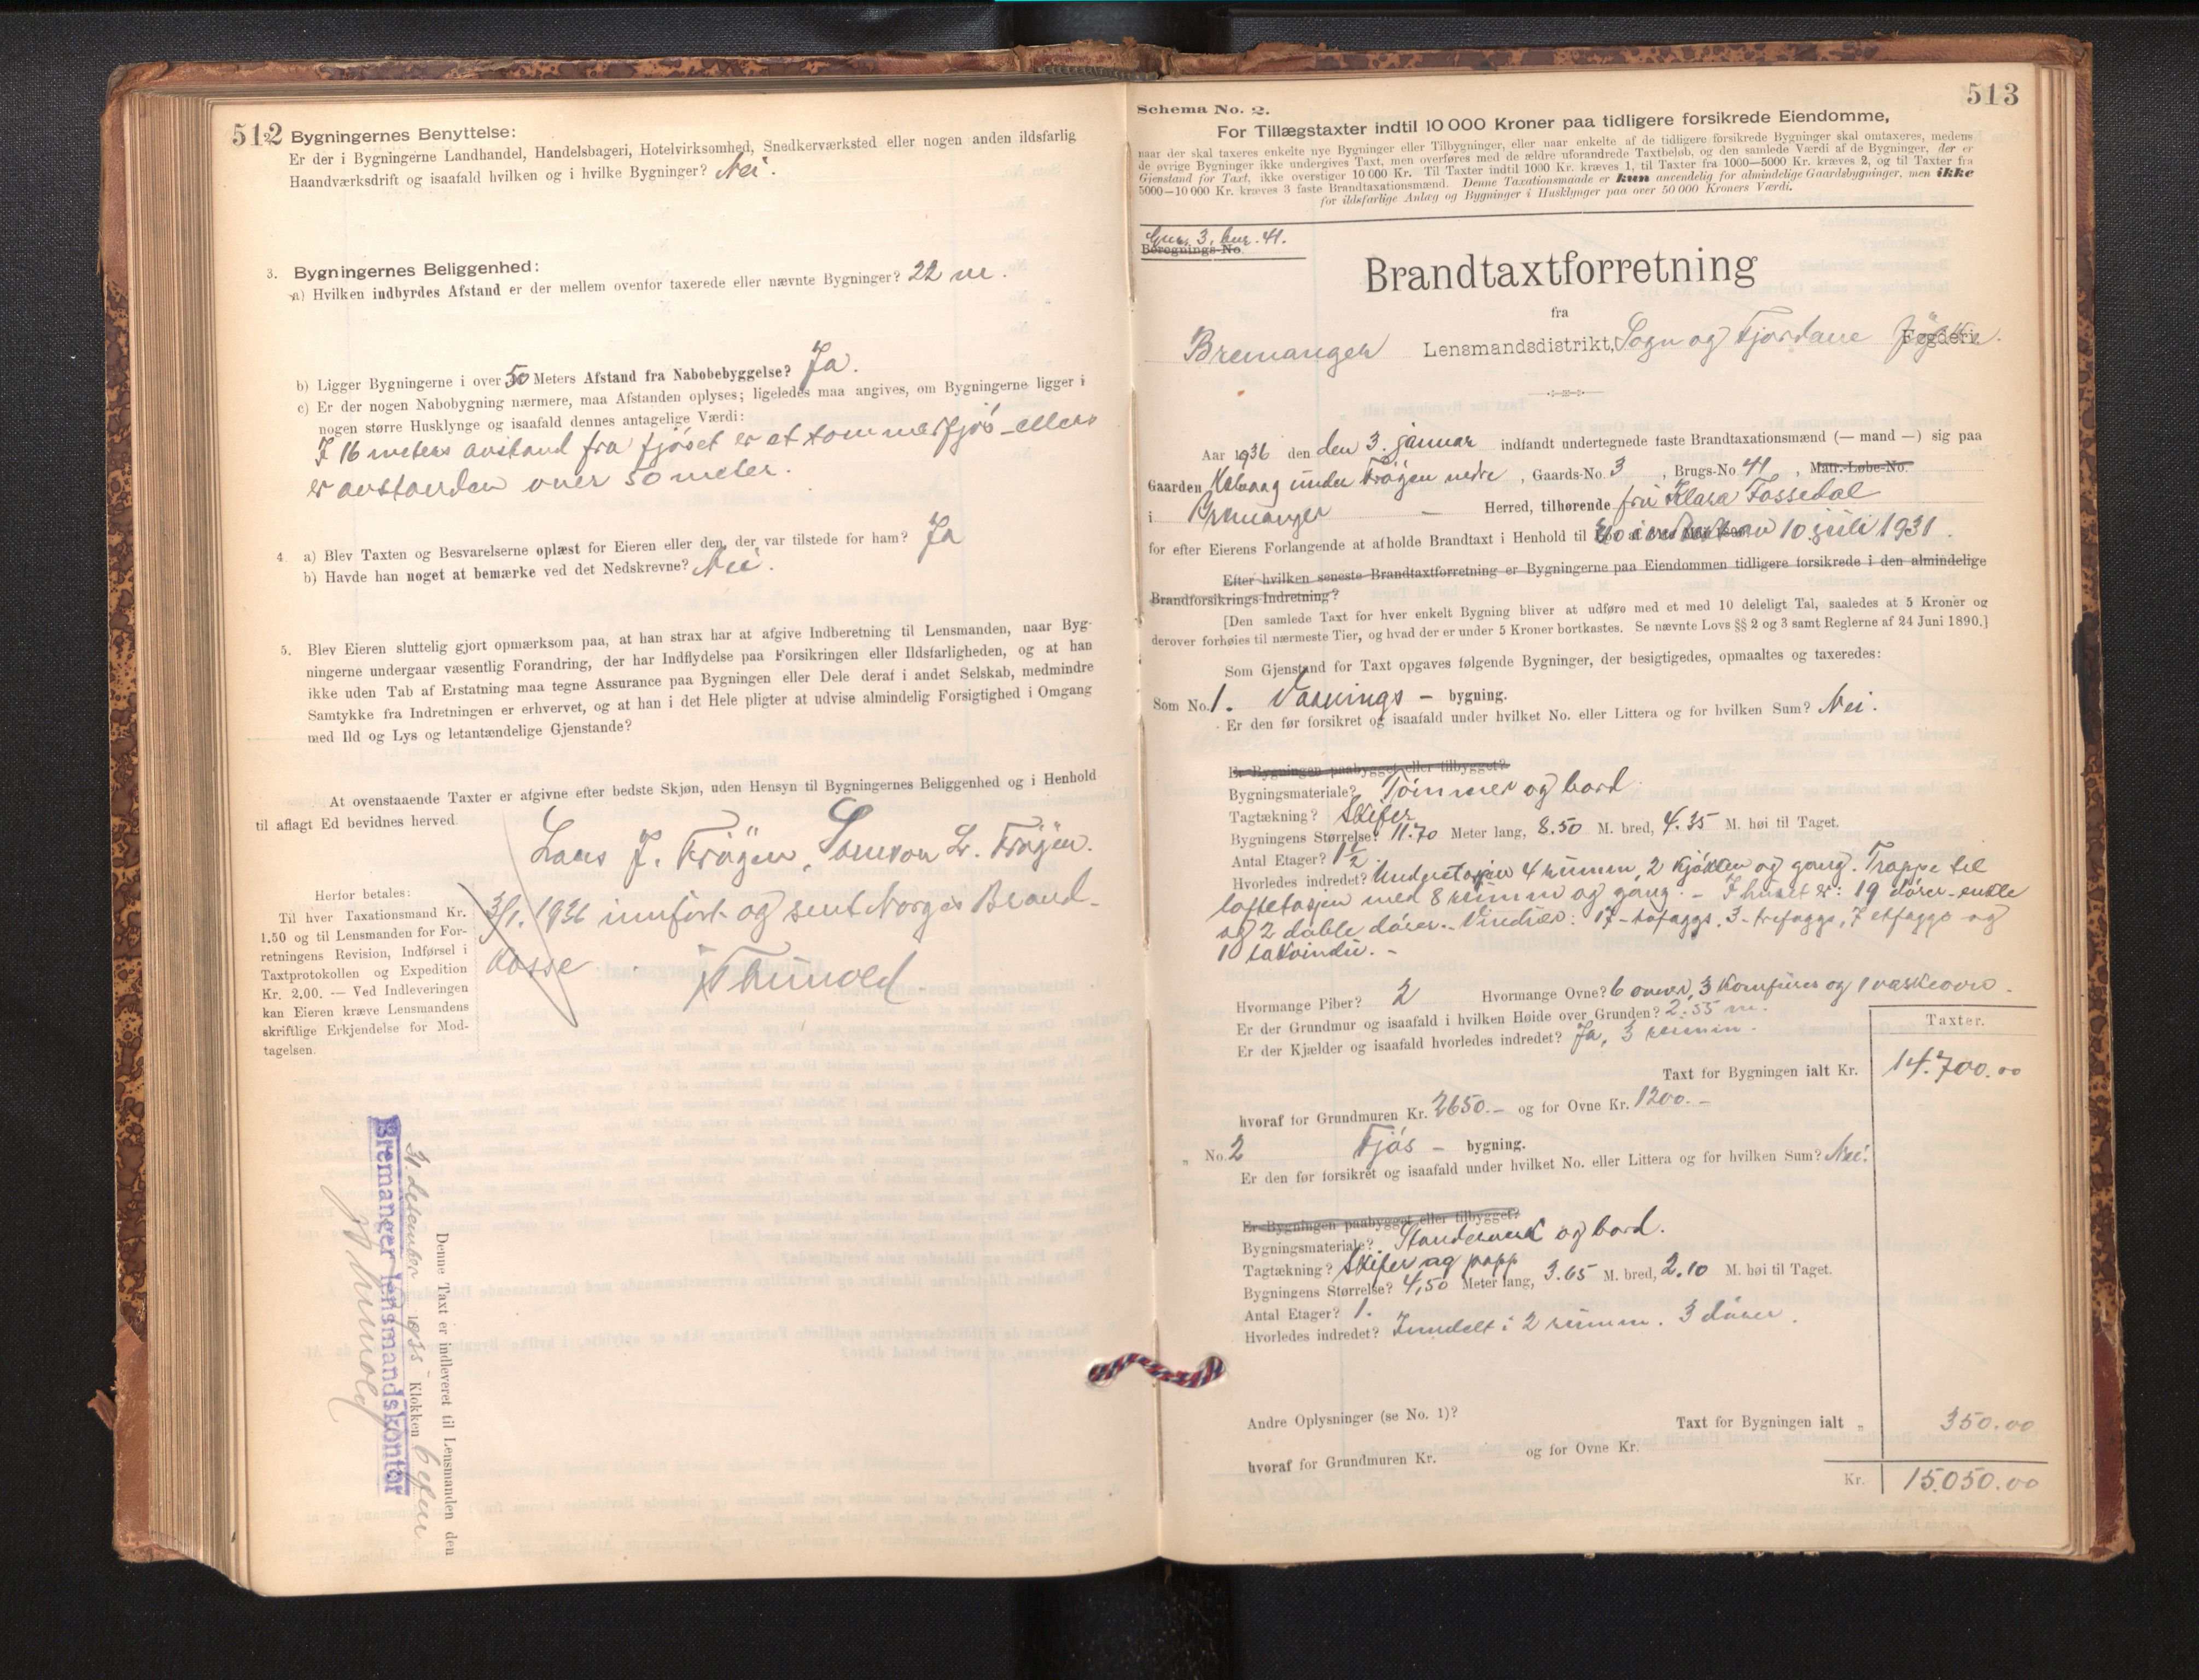 512
Bygningernes Benyttelse:
Er der i Bygningerne Landhandel, Handelsbageri, Hotelvirksomhed, Snedkerværksted eller nogen anden ildsfarlig
Haandværksdrift og isaafald hvilken og i hvilke Bygninger? Nei.
3. Bygningernes Beliggenhed:
a) Hvilken indbyrdes Afstand er der mellem ovenfor taxerede eller nævnte Bygninger? 22 m.
b) Ligger Bygningerne i over 50 Meters Afstand fra Nabobebyggelse? Ja.
c) Er der nogen Nabobygning nærmere, maa Afstanden oplyses; ligeledes maa angives, om Bygningerne ligger i
nogen større Husklynge og isaafald dennes antagelige Værdi:
I 16 meters avstand fra fjøset er et sommerfjøs - ellers
er avstanden over 50 meter.
4. a) Blev Taxten og Besvarelserne oplæst for Eieren eller den, der var tilstede for ham? Ja
b) Havde han noget at bemærke ved det Nedskrevne? Nei.
5. Blev Eieren sluttelig gjort opmærksom paa, at han strax har at afgive Indberetning til Lensmanden, naar Byg-
ningerne undergaar væsentlig Forandring, der har Indflydelse paa Forsikringen eller Ildsfarligheden, og at han
ikke uden Tab af Erstatning maa tegne Assurance paa Bygningen eller Dele deraf i andet Selskab, medmindre
Samtykke fra Indretningen er erhvervet, og at han i det Hele pligter at udvise almindelig Forsigtighed i Omgang
med Ild og Lys og letantændelige Gjenstande?
At ovenstaaende Taxter er afgivne efter bedste Skjøn, uden Hensyn til Bygningernes Beliggenhed og i Henhold
til aflagt Ed bevidnes herved.
Lars J. Frøyen, Samson L. Frøyen.
Herfor betales:
Til hver Taxationsmand Kr.
1.50 og til Lensmanden for For-
retningens Revision, Indførsel i
Taxtprotokollen og Expedition
Kr. 2.00. — Ved Indleveringen
kan Eieren kræve Lensmandens
skriftlige Erkjendelse for Mod-
tagelsen.
3/1. 1936 innført og sent Norges Brand-
kasse.
Denne Taxt er indleveret til Lensmanden den
31. desember 1935 Klokken 6 efm
Bremanger lensmandskontor
513
Schema No. 2.
For Tillægstaxter indtil 10 000 Kroner paa tidligere forsikrede Eiendomme,
naar der skal taxeres enkelte nye Bygninger eller Tilbygninger, eller naar enkelte af de tidligere forsikrede Bygninger skal omtaxeres, medens
de øvrige Bygninger ikke undergives Taxt, men overføres med de ældre uforandrede Taxtbeløb, og den samlede Værdi af de Bygninger, der er
Gjenstand for Taxt, ikke overstiger 10 000 Kr. Til Taxter indtil 1000 Kr. kræves 1, til Taxter fra 1000—5000 Kr. kræves 2, og til Taxter fra
5000—10 000 Kr. kræves 3 faste Brandtaxationsmænd. Denne Taxationsmaade er kun anvendelig for almindelige Gaardsbygninger, men ikke
for ildsfarlige Anlæg og Bygninger i Husklynger paa over 50 000 Kroners Værdi.
Gnr. 3, bnr. 41.
Beregnings-No.
Brandtaxtforretning
fra
Bremanger Lensmandsdistrikt, Sogn og Fjordane Fogderi.
Aar 1936 den den 3. januar indfandt undertegnede faste Brandtaxationsmænd (— mand —) sig paa
Gaarden Kolvaag under Frøyen nedre, Gaards-No. 3, Brugs-No 41, Matr.-Løbe-No.
i Bremanger - Herred, tilhørende fru Klara Fossedal
for efter Eierens Forlangende at afholde Brandtaxt i Henhold til 10 juli 1931.
Efter hvilken seneste Brandtaxtforretning er Bygningerne paa Eiendommen tidligere forsikrede i den almindelige
Brandforsikrings-Indretning?
[Den samlede Taxt for hver enkelt Bygning bliver at udføre med et med 10 deleligt Tal, saaledes at 5 Kroner og
derover forhøies til nærmeste Tier, og hvad der er under 5 Kroner bortkastes. Se nævnte Lovs §§ 2 og 3 samt Reglerne af 24 Juni 1890.]
Som Gjenstand for Taxt opgaves følgende Bygninger, der besigtigedes, opmaaltes og taxeredes:
Som No. 1. Vaanings - bygning.
Er den før forsikret og isaafald under hvilket No. eller Littera og for hvilken Sum? Nei.
Er Bygningen paabygget eller tilbygget?
Bygningsmateriale? Tømmer og bord
Tagtækning? Skifer
Bygningens Størrelse? 11.70 Meter lang, 8.50 M. bred, 4.35 M. høi til Taget.
Antal Etager? 1½
Hvorledes indredet? Underetasjen 4 rumm, 2 kjøkken og gang. Trappe til
loftetasjen med 8 rumm og gang. - I huset er: 19 dører - enkle
og 2 doble dører. Vinduer: 17 - tofaggs, 3 - trefaggs, 7 etfaggs og
10 takvindu. -
Hvormange Piber? 2 Hvormange Ovne? 6 ovner, 3 komfurer og 1 vaskeovn.
Er der Grundmur og isaafald i hvilken Høide over Grunden? 2.55 m.
Er der Kjælder og isaafald hvorledes indredet? Ja, 3 rumm.
Taxter.
Taxt for Bygningen ialt Kr. 14.700.00
hvoraf for Grundmuren Kr. 2650.- og for Ovne Kr. 1200.-
„ No. 2 Fjøs - bygning.
Er den før forsikret og isaafald under hvilket No. eller Littera og for hvilken Sum? Nei.
Er Bygningen paabygget eller tilbygget?
Bygningsmateriale? Standerverk og bord.
Tagtækning? Skifer og papp
Bygningens Størrelse? 4,50 Meter lang, 3.65 M. bred, 2.10 M. høi til Taget.
Antal Etager? 1.
Hvorledes indredet? Inndelt i 2 rumm. 3 dører.
Andre Oplysninger (se No. 1)?
Taxt for Bygningen ialt „ 350.00
hvoraf for Grundmuren Kr. og for Ovne Kr.
Kr. 15.050.00